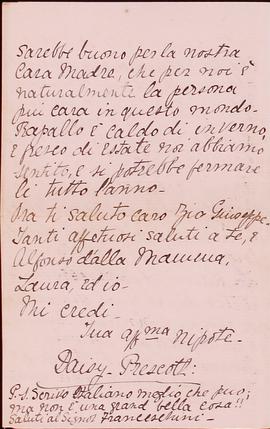 sarebbe buono per la nostra
Cara Madre, che per noi è
naturalmente la persona
più cara in questo mondo-
Rapallo è caldo di inverno,
e fresco di Estate noi abbiamo
sentito, e si potrebbe fermare
li tutto l'anno-
Ora ti saluto caro Zio Giuseppe-
Tanti affetuosi saluti a te, e
Alfonso dalla Mamma,
Laura, ed io-
Mi credi-
Tua affma Nipote-
Daisy- Prescott:
P.-S. Scrivo Italiano meglio che può;
ma non è una grand bella cosa!!
Saluti al Signor Franceschini-